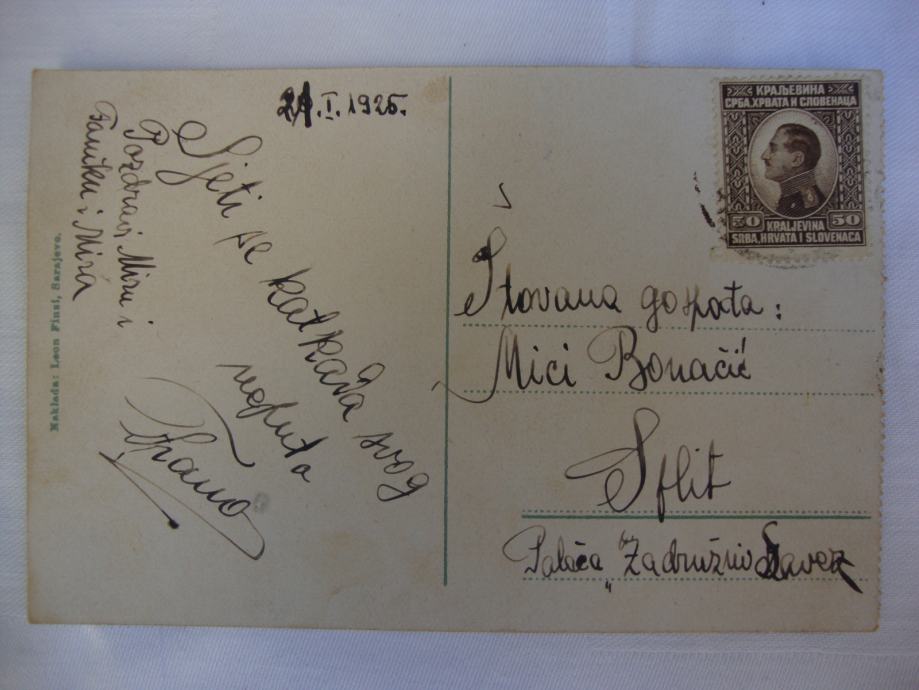 21.I.1925.
Sjeti se katkada svog
neputa
Frano
Pozdravi Miru i
Faniku i Mirá
Naklada: Leon Finzi, Sarajevo.
КРАЉЕВИНА
СРБА, ХРВАТА И СЛОВЕНАЦА
50 50
KRALJEVINA
SRBA, HRVATA I SLOVENACA
Štovana gospođa:
Mici Bonačić
Split
Palača "Zadružni Savez